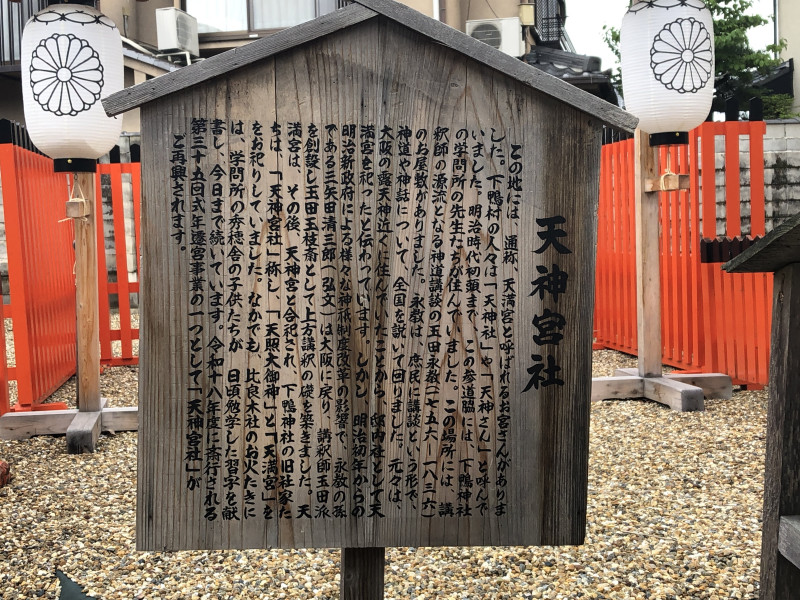 天神宮社
この地には、通称、天満宮と呼ばれるお宮さんがありま
した。下鴨村の人々は「天神社」や「天神さん」と呼んで
いました。明治時代初頭まで、この参道脇には、下鴨神社
の学問所の先生たちが住んでいました。この場所には、講
釈師の源流となる神道講談の玉田永教(一七五六―一八三六)
のお屋敷がありました。永教は、庶民に講談という形で、
神道や神話について、全国を説いて回りました。元々は、
大阪の露天神近くに住んでいたことから、邸内社として天
満宮を祀ったと伝わっています。しかし、明治初年からの
明治新政府による様々な神祇制度改革の影響で、永教の孫
である三矢田清三郎(弘文)は大阪に戻り、講釈師玉田派
を創設し玉田玉枝斎として上方講釈の礎を築きました。天
満宮は、その後、天神宮と合祀され、下鴨神社の旧社家た
ちは、「天神宮社」称し「天照大御神」と「天満宮」を
をお祀りしていました。なかでも、比良木社のお火たきに
は、学問所の秀穂舎の子供たちが、日頃勉学した習字を献
書し、今日まで続いています。令和十八年度に斎行される
第三十五回式年遷宮事業の一つとして「天神宮社」が
ご再興されます。